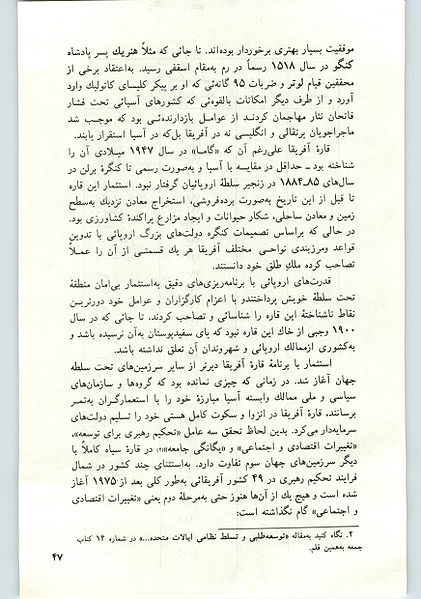 موفقیت بسیار بهتری برخوردار بوده‌اند. تا جائی که مثلاً هنریك پسر پادشاه
کنگو در سال ۱۵۱۸ رسماً در رم به‌مقام اسقفی رسید. به‌اعتقاد برخی از
محققین قیام لوتر و ضربات ۹۵ گانه‌ئی که او بر پیکر کلیسای کاتولیك وارد
آورد و از طرف دیگر امکانات بالقوه‌ئی که کشورهای آسیائی تحت فشار
فاتحان نثار مهاجمان کردند از عوامل بازدارنده‌ئی بود که موجب شد
ماجراجویان پرتقالی و انگلیسی نه در آفریقا بل‌که در آسیا استقرار یابند.
قارهٔ آفریقا علی‌رغم آن که «گاما» در سال ۱۹۴۷ میلادی آن را
شناخته بود ـ حداقل در مقایسه با آسیا و به‌صورت رسمی تا کنگرهٔ برلن در
سال‌های ۸۵ـ۱۸۸۴ در زنجیر سلطهٔ اروپائیان گرفتار نبود. استثمار این قاره
تا قبل از این تاریخ به‌صورت برده‌فروشی، استخراج معادن نزدیك به‌سطح
زمین و معادن ساحلی، شکار حیوانات و ایجاد مزارع پراکندهٔ کشاورزی بود.
در حالی که براساس تصمیمات کنگره دولت‌های بزرگ اروپائی با تدوین
قواعد ومرزبندی نواحی مختلف آفریقا هر یك قسمتی از آن را عملاً
تصاحب کرده ملكِ طلق خود دانستند.
قدرت‌های اروپائی با برنامه‌ریزی‌های دقیق به‌استثمار بی‌امان منطقهٔ
تحت سلطهٔ خویش پرداختندو با اعزام کارگزاران و عوامل خود دورترین
نقاط ناشناختهٔ این قاره را شناسائی و تصاحب کردند، تا جائی که در سال
۱۹۰۰ وجبی از خاك این قاره نبود که پای سفیدپوستان به‌آن نرسیده باشد و
به‌کشوری ازممالك اروپائی و شهروندان آن تعلق نداشته باشد.
استثمار با برنامهٔ قارهٔ آفریقا دیرتر از سایر سرزمین‌های تحت سلطه
جهان آغاز شد. در زمانی که چیزی نمانده بود که گروه‌ها و سازمان‌های
سیاسی و ملی ممالك وابسته آسیا مبارزهٔ خود را با استعمارگران به‌ثمر
برسانند، قارهٔ آفریقا در انزوا و سکوت کامل هستی خود را تسلیم دولت‌های
سرمایه‌دار می‌کرد. بدین لحاظ تحقق سه عامل «تحکیم رهبری برای توسعه»،
«تغییرات اقتصادی و اجتماعی» و «یگانگی جامعه»(۲) در قارهٔ سیاه کاملاً با
دیگر سرزمین‌های جهان سوم تفاوت دارد. به‌استثنای چند کشور در شمال
فرایند تحکیم رهبری در ۴۹ کشور آفریقائی به‌طور کلی بعد از ۱۹۷۵ آغاز
شده است و هیچ یك از آن‌ها هنوز حتی به‌مرحلهٔ دوم یعنی «تغییرات اقتصادی
و اجتماعی» گام نگذاشته است:
۲. نگاه کنید به‌مقاله «توسعه‌طلبی و تسلط نظامی ایالات متحده...» در شماره ۱۴ کتاب
جمعه به‌همین قلم.
۴۷